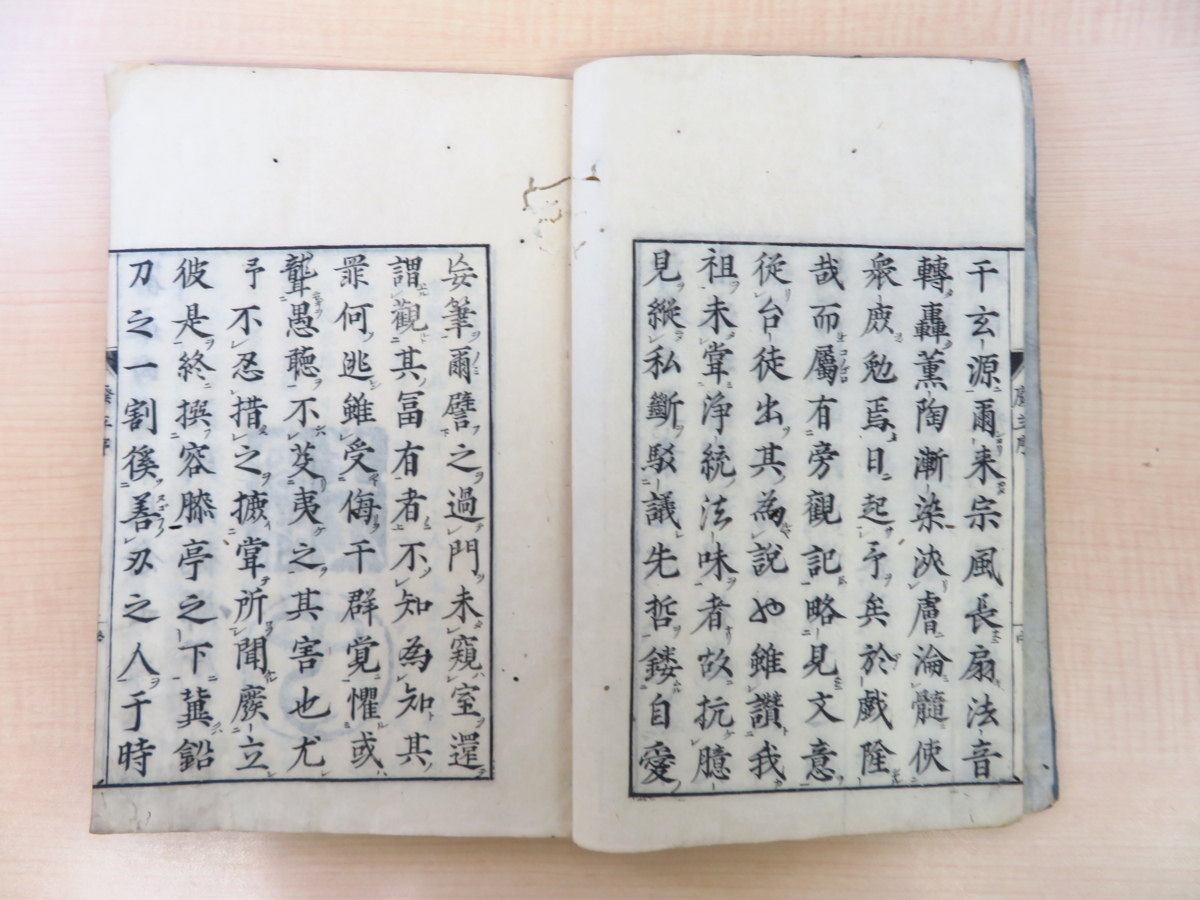 千玄源爾来宗風長扇法音
轉轟薫陶漸染浹膚淪髓使
衆庻勉焉日起予矣於戯陸
哉而屬有旁觀記略見文意
從台徒出其為說也雖讚我
祖未甞淨統法味者故抗臆
見縱私斷駁議先哲鏤自愛
妄筆爾譬之過門未窺室還
謂觀其冨有者不知為知其
罪何逃雖受侮千群覚懼或
聾愚聽不芟夷之其害也尤
予不忍措之摭甞所聞廢立
彼是終撰容膝亭之下冀鉛
刀之一割徯善刃之人于時